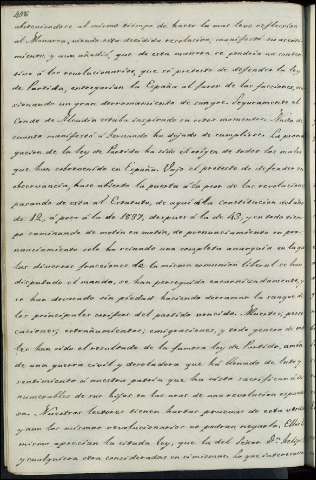 406
absteniéndose al mismo tiempo de hacer la mas leve reflecsion
al Monarca, siendo esta decidida resolucion, manifestó su asenti-
miento, y aun añadió, que de esta manera se pondria un correc-
tivo á los revolucionarios, que só pretesto de defender la ley
de Partida, entregarian la España al furor de las facciones, oca-
sionando un gran derramamiento de sangre. Seguramente el
Conde de Alcudia estaba inspirado en estos momentos. Nada de
cuanto manifestó á Fernando ha dejado de cumplirse. La promul-
gacion de la ley de Partida ha sido el orígen de todos los males
que han sobrevenido en España. Bajo el pretesto de defender su
observancia, se ha abierto la puerta á la peor de las revoluciones
pasando de esta al Estatuto, de aquí á la constitucion del año
de 12, á poco á la de 1837, despues á la de 45, y en todo tiem-
po caminando de motin en motin, de pronunciamiento en pro-
nunciamiento solo ha reinado una completa anarquía en la que
las diversas fracciones de la misma comunion liberal se han
disputado el mando, se han perseguido encarnizadamente, y
se han devorado sin piedad haciendo derramar la sangre de
los principales corifeos del partido vencido. Muertes, perse-
cuciones, estrañamientos, emigraciones, y todo género de ma-
les han sido el resultado de la famosa ley de Partida, amen
de una guerra civil y desoladora que há llenado de luto y
sentimiento á nuestra patria que ha visto sacrificar á in-
numerables de sus hijos en las aras de una revolucion espanto-
sa. Nuestros lectores tienen hartas pruebas de esta verdad
y aun los mismos revolucionarios no podran negarla. Ellos
mismos aprecian la citada ley, que la del Señor Dn. Felipe
y cualquiera otra consideradas en sí mismas. Lo que interesaba